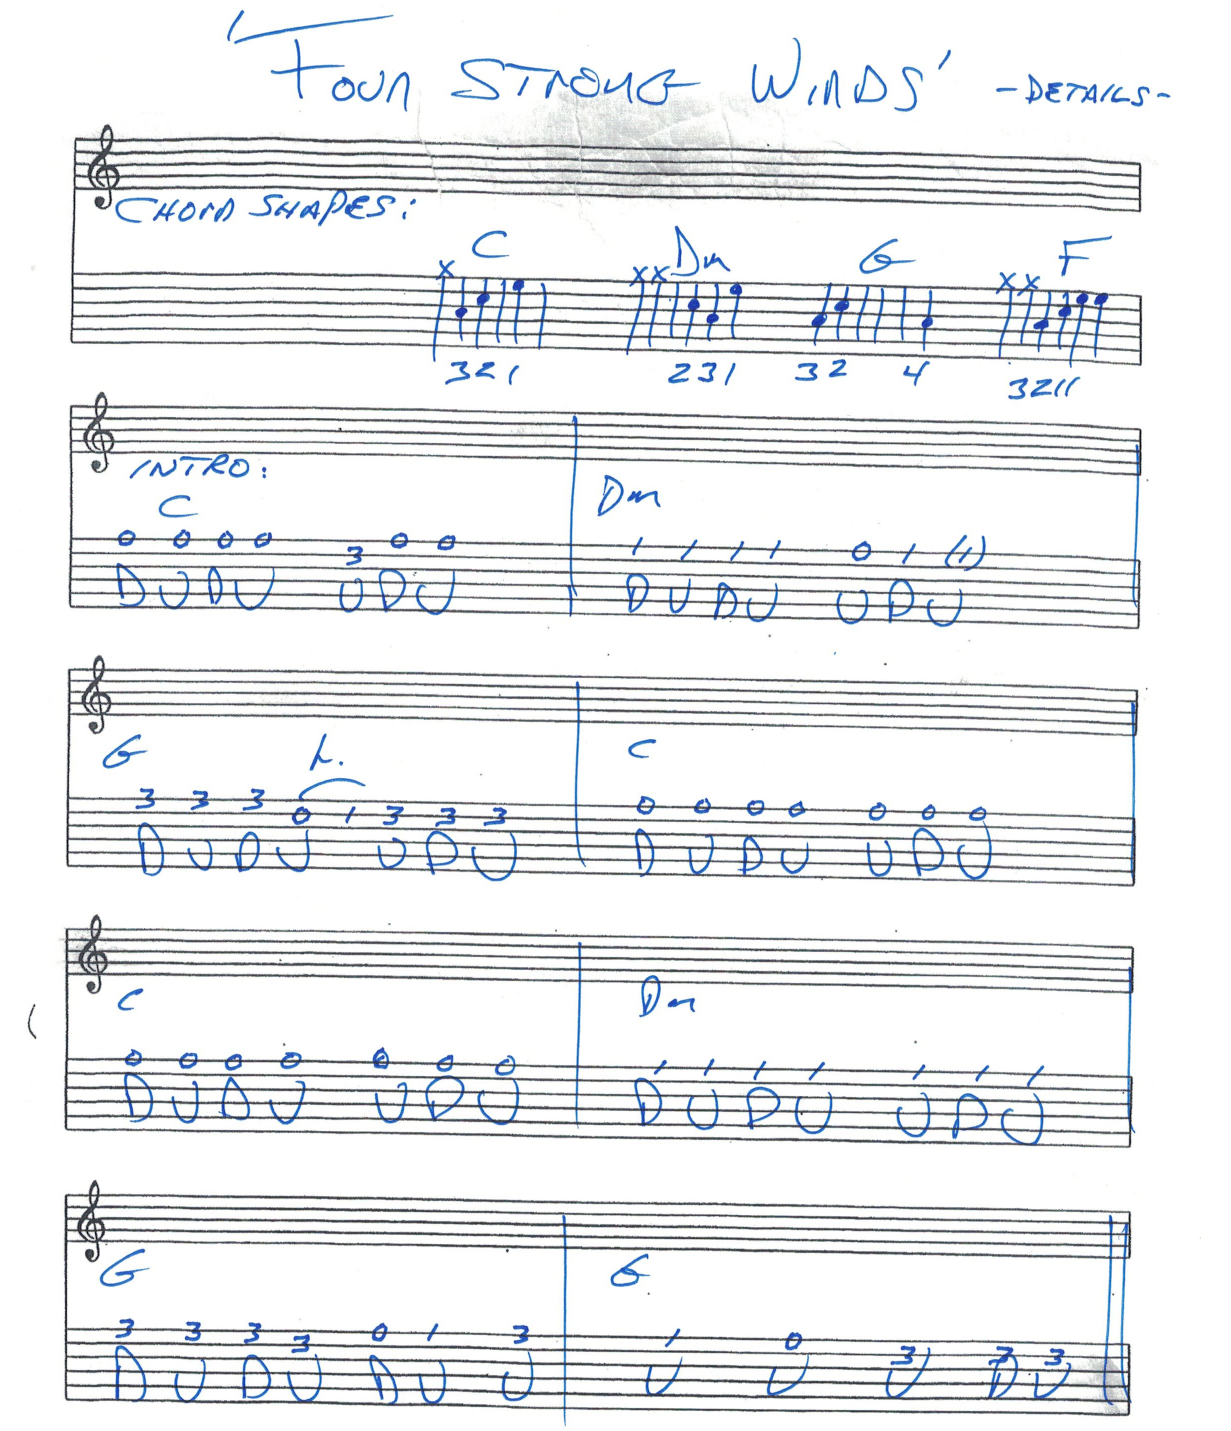 'FOUR STRONG WINDS' -DETAILS-
CHORD SHAPES:
C Dm G F
x xx xx
321 231 32 4 3211
INTRO:
C Dm
0 0 0 0 3 0 0 1 1 1 1 0 1 (1)
D U D U U D U D U D U U D U
G L. C
3 3 3 0 1 3 3 3 0 0 0 0 0 0 0
D U D U U D U D U D U U D U
C Dm
0 0 0 0 0 0 0 1 1 1 1 1 1 1
D U D U U D U D U D U U D U
G G
3 3 3 3 0 1 3 1 0 3 3 3
D U D U D U U U U U D U